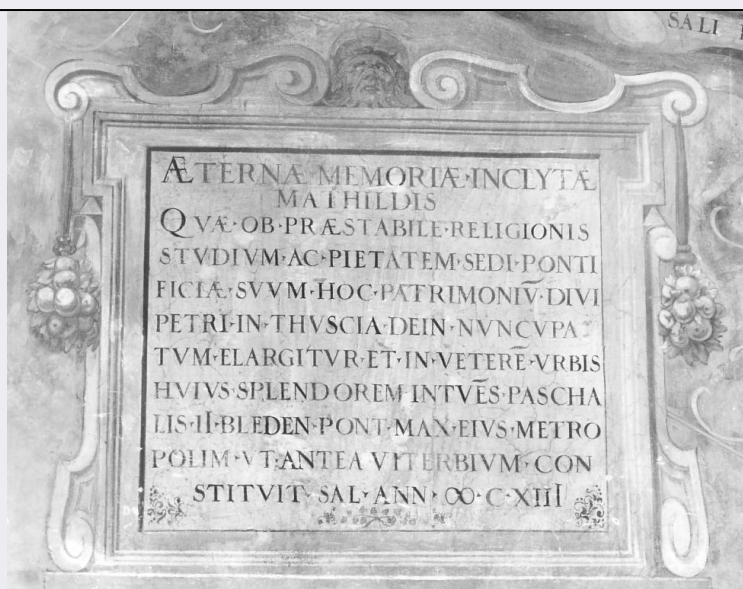 SALI
ÆTERNÆ·MEMORIÆ·INCLYTÆ
MATHILDIS
QVÆ·OB·PRÆSTABILE·RELIGIONIS
STVDIVM·AC·PIETATEM·SEDI·PONTI
FICIÆ·SVVM·HOC·PATRIMONIV̄·DIVI
PETRI·IN·THVSCIA·DEIN·NVNCVPA
TVM·ELARGITVR·ET·IN·VETERĒ·VRBIS
HVIVS·SPLENDOREM·INTVĒS·PASCHA
LIS·II·BLEDEN·PONT·MAX·EIVS·METRO
POLIM·VT·ANTEA VITERBIVM·CON
STITVIT·SAL·ANN·ↀ·C·XIII